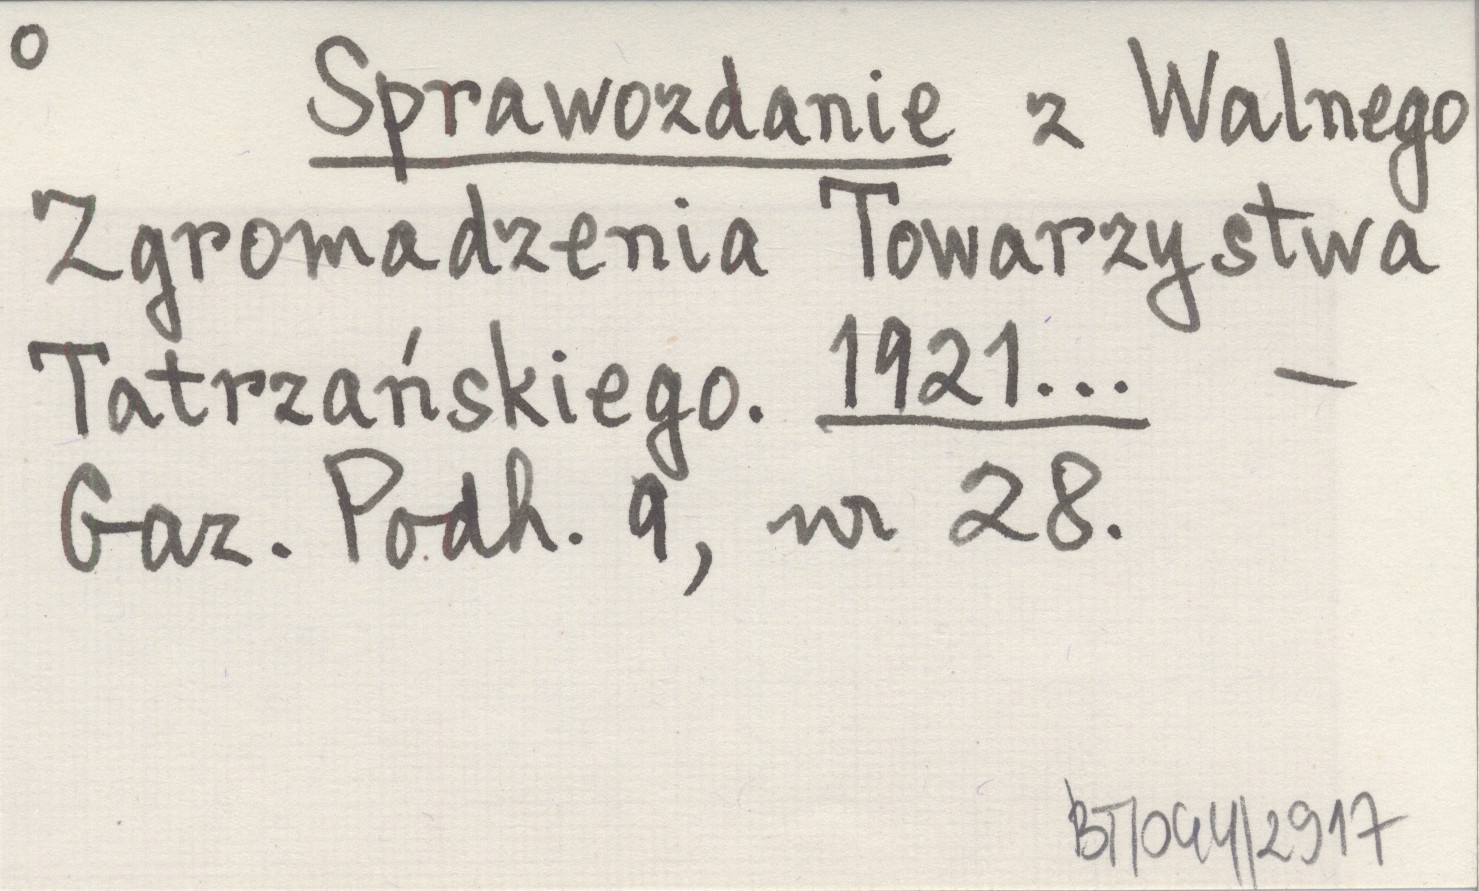 o Sprawozdanie z Walnego
Zgromadzenia Towarzystwa
Tatrzańskiego. 1921... –
Gaz. Podh. 9, nr 28.
BT/044/2917